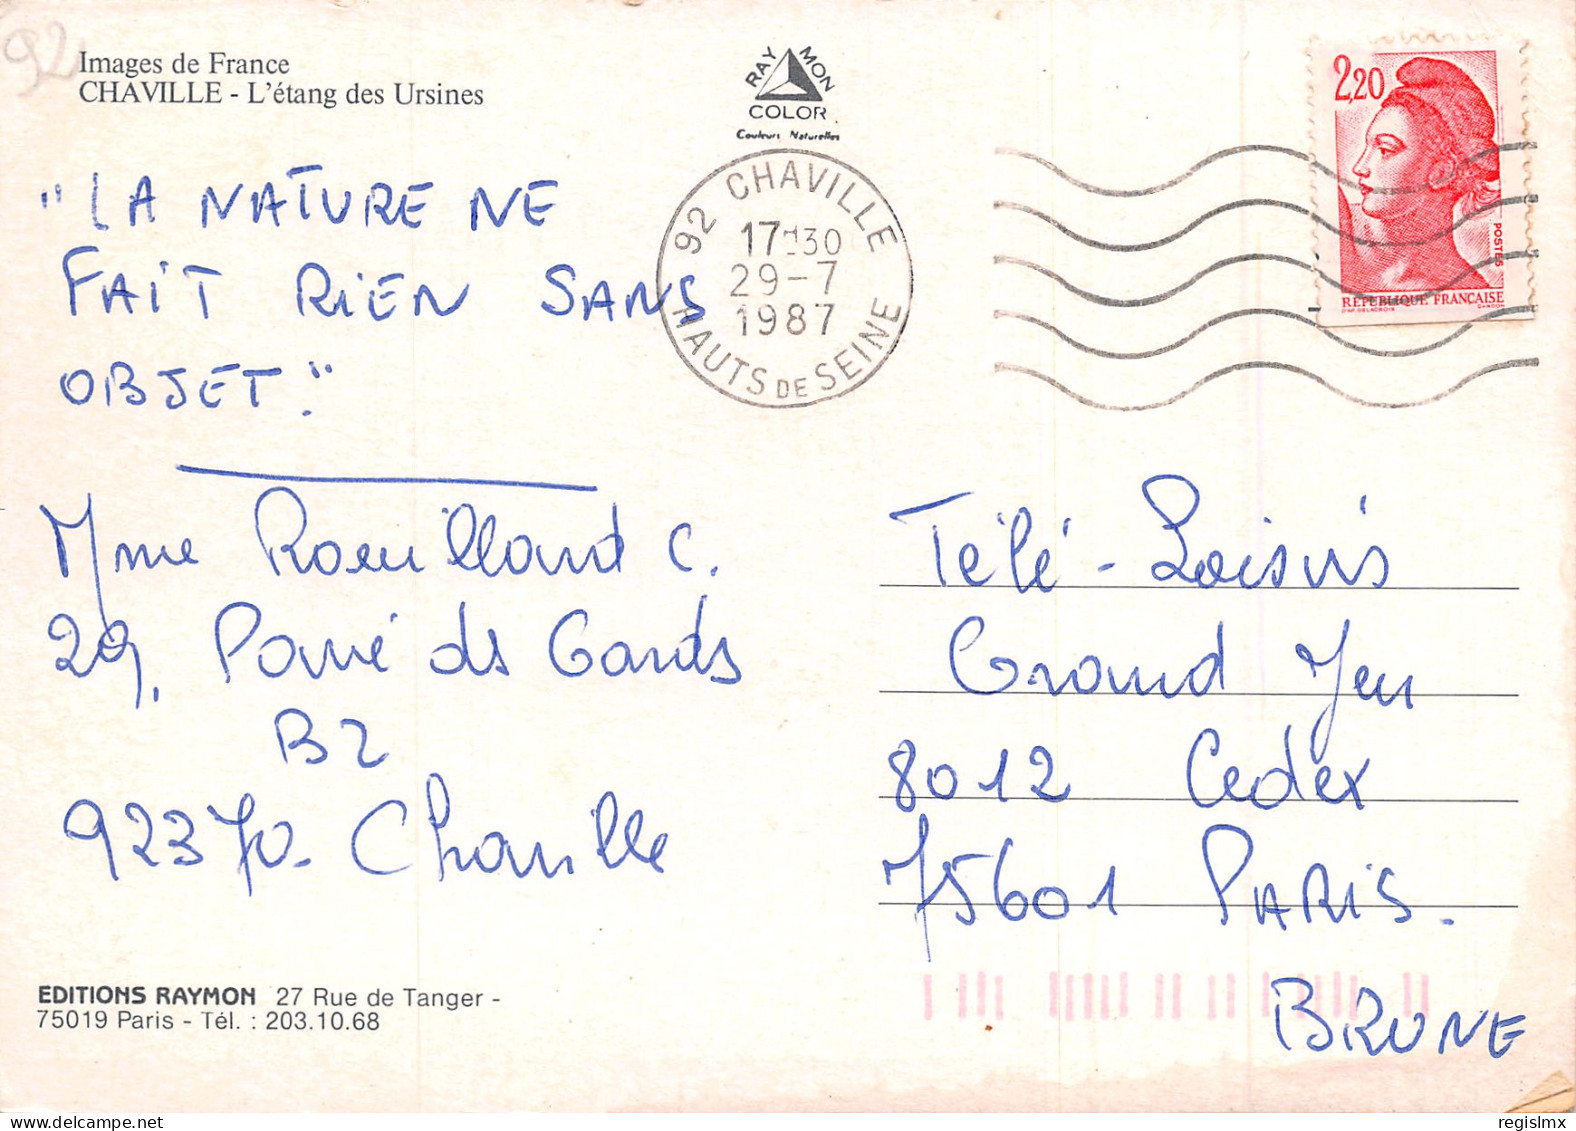 92
Images de France
CHAVILLE - L'étang des Ursines
RAYMON
COLOR
Couleurs Naturelles
"LA NATURE NE
FAIT RIEN SANS
OBJET."
92 CHAVILLE
17H30
29-7
1987
HAUTS DE SEINE
2,20
POSTES
RÉPUBLIQUE FRANÇAISE
D'AP. DELACROIX GANDON
Mme Rouilland C.
29, Pavé ds Gards
B2
92370 - Chaville
Télé-Loisirs
Grand Jeu
8012 Cedex
75601 PARIS.
BRUNE
EDITIONS RAYMON 27 Rue de Tanger -
75019 Paris - Tél. : 203.10.68
regislmx